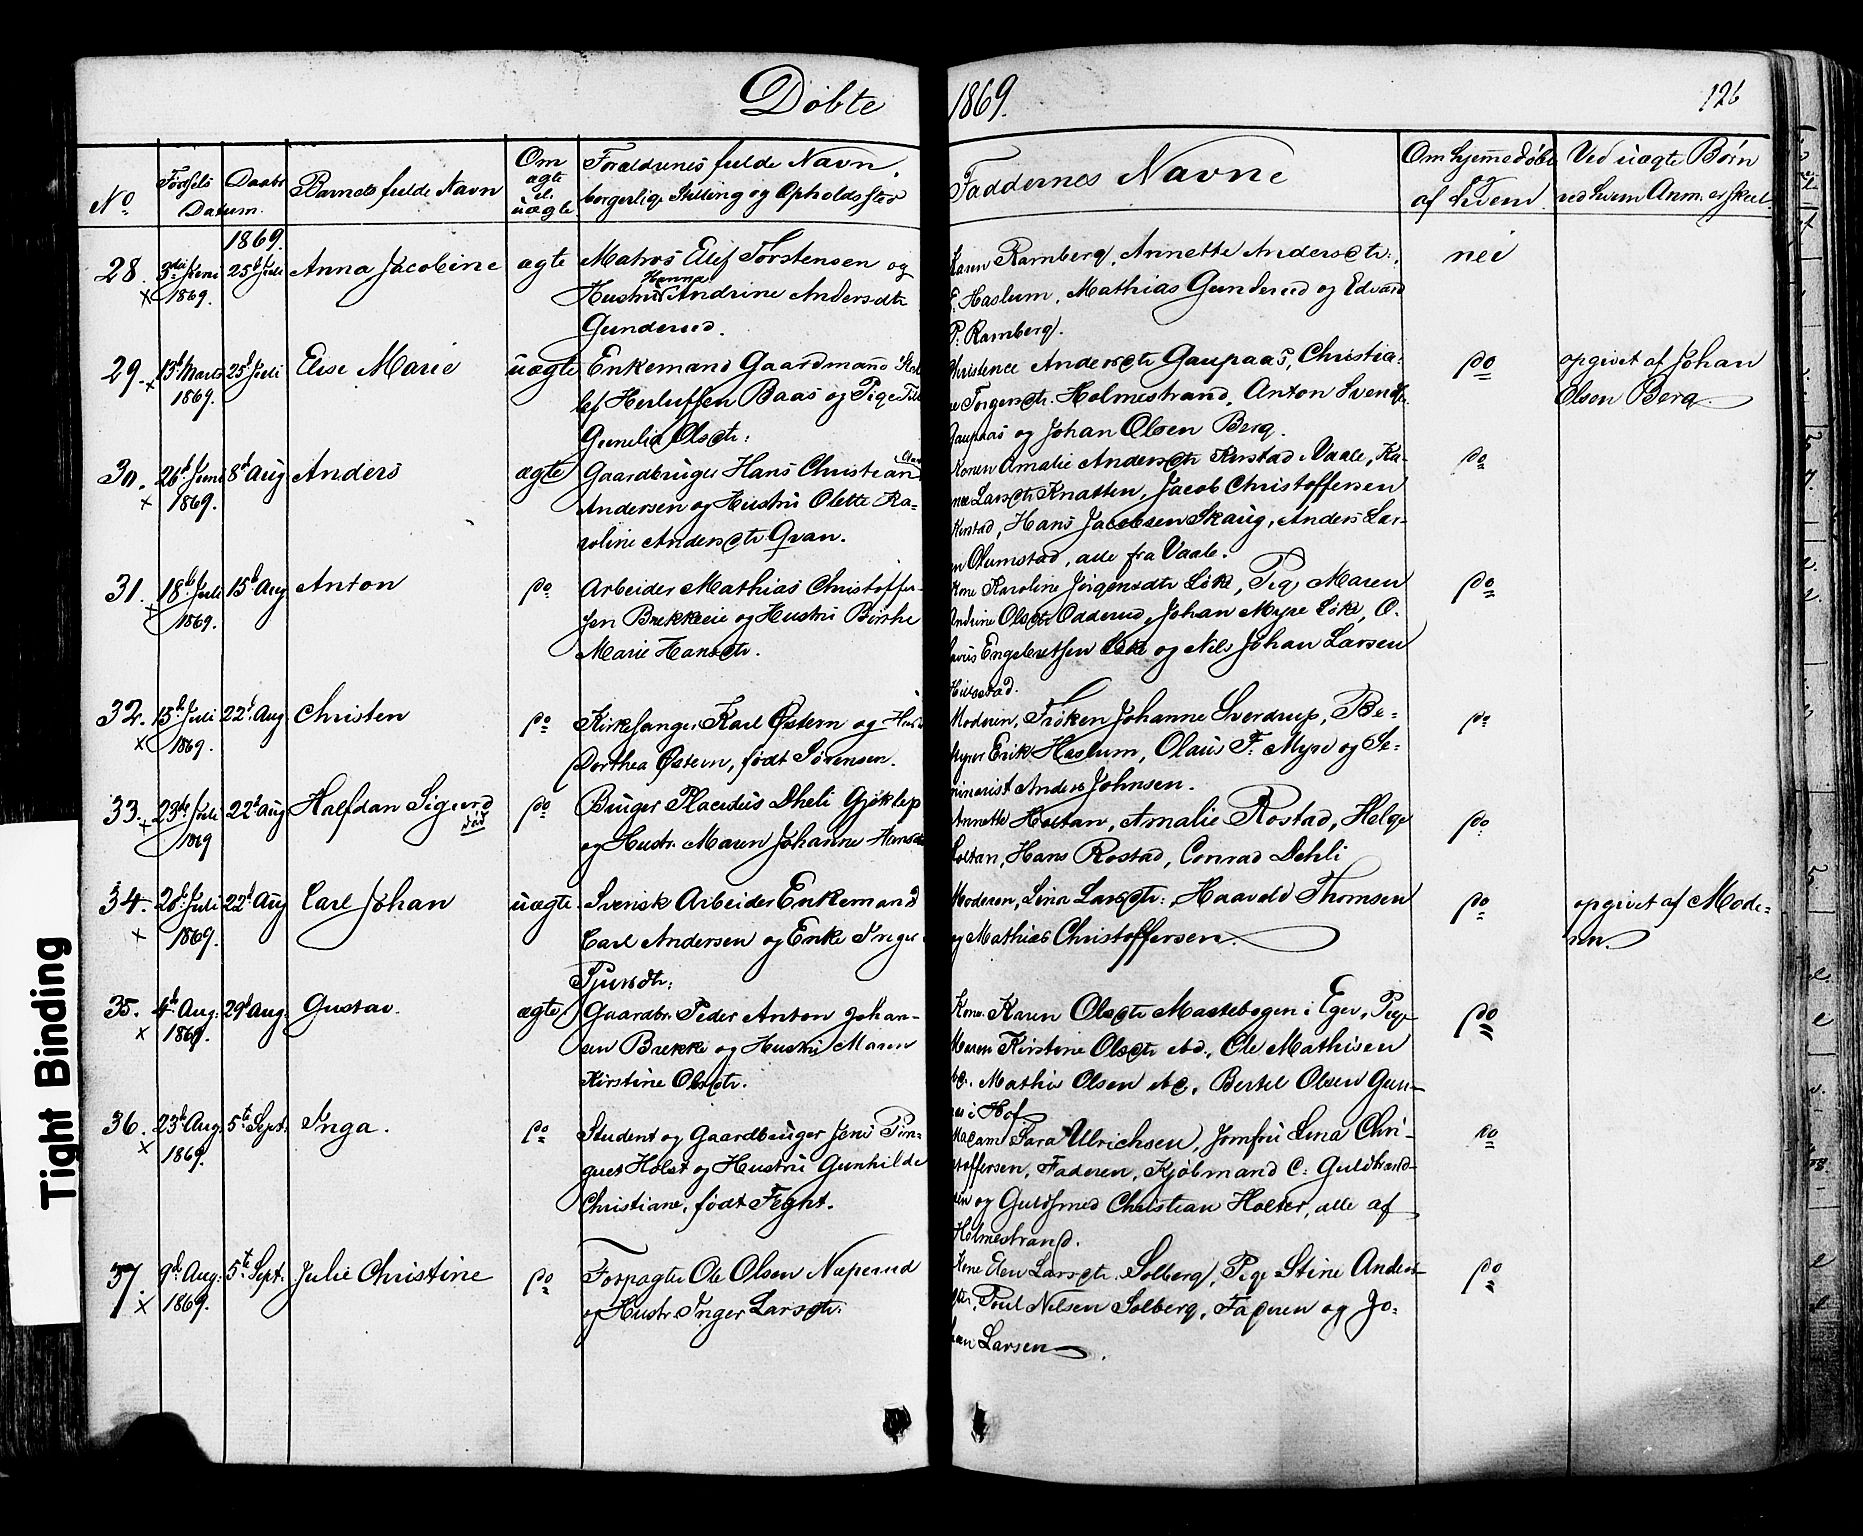 Døbte 1869.
126
No
Fødsels Daabs
Datum.
Barnets fulde Navn
Om ægte el. uægte
Forældrenes fulde Navn,
borgerlige Stilling og Opholdssted
Faddernes Navne
Om hjemmedøbt
af hvem.
Ved uægte Børn
ved hvem Anm. er skeet.
1869.
28. 3die Juni 1869. 25d Juli Anna Jacobine ægte
Matros Elef Torstensen og
Hanna
Hustru Andrine Andersdtr
Gunderud.
Karen Ramberg, Annette Andersdtr.,
F. Haslum, Mathias Gunderud og Edvard
P. Ramberg.
nei
29. 13d Marts 1869. 25d Juli Elise Marie uægte
Enkemand Gaardmand
Herlufsen Baas og Pige
Gunelia Olsdtr:
Christence Andersdtr Gaupaas, Christia-
ne Torgersdtr. Holmestrand, Anton Svends.
Gaupaas og Johan Olsen Berg.
do
opgivet af Johan
Olsen Berg.
30. 26d Juni 1869. 8d Aug Anders ægte
Gaardbruger Hans Christian
Andersen og Hustru Olette Ka-
roline Andersdtr Qvan.
Konen Amalie Andersdtr Kirstad i Vaale, Ka-
Larsdtr Knatten, Jacob Christoffersen
Kirstad, Hans Jacobsen Skaug, Anders Lar-
sen Olumstad, alle fra Vaale.
do
31. 18de Juli 1869. 15d Aug Anton do
Arbeider Mathias Christoffer-
sen Brekkeeie og Hustru Børthe
Marie Hansdtr.
Kone Karoline Jørgensdtr Løke, Pige Maren
Andrine Olsdtr Odderud, Johan Myre Løke, O-
lavus Engebretsen Løke og Nils Johan Larsen
Hillestad.
do
32. 13de Juli 1869. 22d Aug Christen do
Kirkesanger Karl Østern og Hust
Dorthea Østern, født Sørensen.
Moderen, Frøken Johanne Sverdrup, Be-
styrer Erik Haslum, Olaus F. Myre og Se-
minarist Anders Johnsen.
do
33. 23de Juli 1869 22d Aug Halfdan Sigurd do
død
Bruger Placidus Dheli Gjøklep
og Hustr. Maren Johanne Hansdtr
Annette Holtan, Amalie Rostad, Helge
Holtan, Hans Rostad, Conrad Dehli
do
34. 20d Juli 1869. 22d Aug Carl Johan uægte
Svensk Arbeider Enkemand
Carl Andersen og Enke Inger
Sjursdtr.
Moderen, Lina Larsdtr., Haavald Thomsen
og Mathias Christoffersen.
do
opgivet af Mode-
ren.
35. 4d Aug. 1869. 29d Aug. Gustav. ægte
Gaardbr. Peder Anton Johan-
sen Brekke og Hustru Maren
Kirstine Olsdtr.
Kone Karen Olsdtr Mastebogen i Eger, Pige
Maren Kirstine Olsdtr ibd., Ole Mathisen
ibd. Mathis Olsen ibd, Bertel Olsen Gun-
nes i Hof
do
36. 23d Aug. 1869. 5te Sept. Inga. do
Student og Gaardbruger Jens Pin-
guel Holst og Hustru Gunhilde
Christiane, født Feght.
Madam Sara Ulrichsen, Jomfru Lina Chri-
stoffersen, Faderen, Kjøbmand C. Guldbrand-
sen og Guldsmed Christian Holter, alle af
Holmestrand.
do
37. 9de Aug. 1869. 5te Sept. Julie Christine do
Forpagter Ole Olsen Naperud
og Hustr. Inger Larsdtr.
Kone Elen Larsdtr Solberg, Pige Stine Anders-
dtr, Poul Nilsen Solberg, Faderen og Jo-
han Larsen
do
Tight Binding